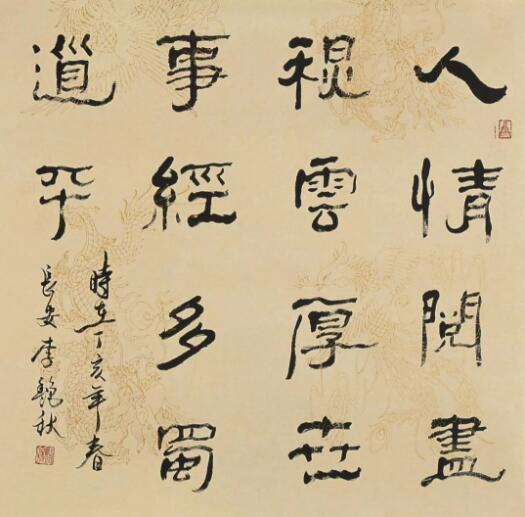 人情閱盡
雲厚世
事經多蜀
道平
時在丁亥年春
長安李秋